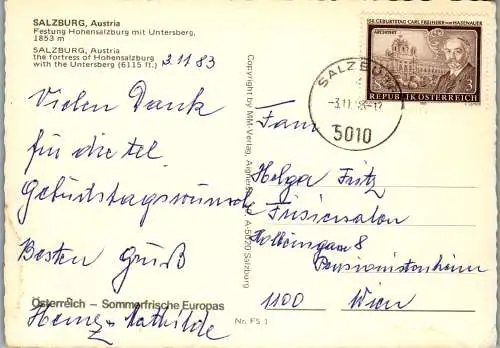 SALZBURG, Austria
Festung Hohensalzburg mit Untersberg,
1853 m
SALZBURG, Austria
the fortress of Hohensalzburg
with the Untersberg (6115 ft.)
3.11.83
Vielen Dank
für die tel.
Geburtstagswünsche
Besten Gruß
Österreich – Sommerfrische Europas
Heinz + Mathilde
Nr. FS 1
Copyright by MM-Verlag, A-5020 Salzburg
150. GEBURTSTAG CARL FREIHERR VON HASENAUER
ARCHITEKT
3
REPUBLIK ÖSTERREICH
SALZBURG
-3.11.
5010
Frau
Helga Fritz
Frisiersalon
Holbeingasse 8
Pensionistenheim
1100 Wien